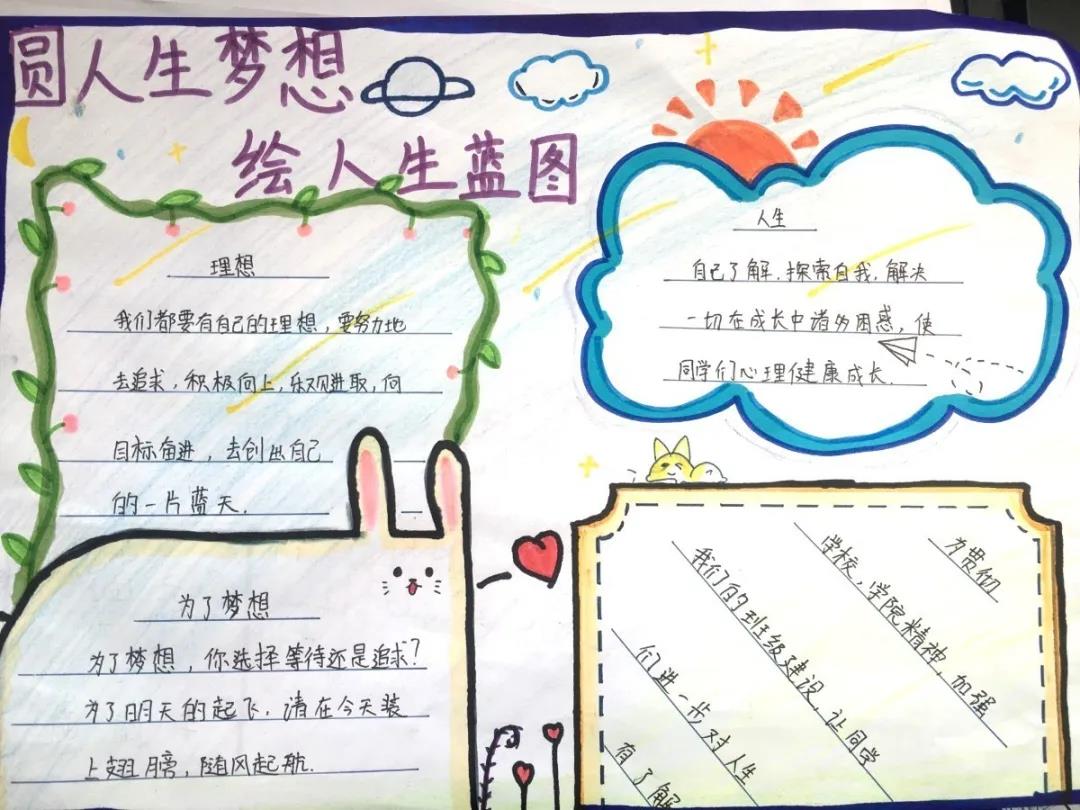 圆人生梦想
绘人生蓝图
理想
我们都要有自己的理想，要努力地
去追求，积极向上，乐观进取，向
目标奋进，去创出自己
的一片蓝天.
人生
自己了解.探索自我.解决
一切在成长中诸多困惑，使
同学们心理健康成长.
为了梦想
为了梦想，你选择等待还是追求？
为了明天的起飞.请在今天装
上翅膀，随风起航.
为贯彻
学校，学院精神，加强
我们的班级建设，让同学
们进一步对人生
有了解